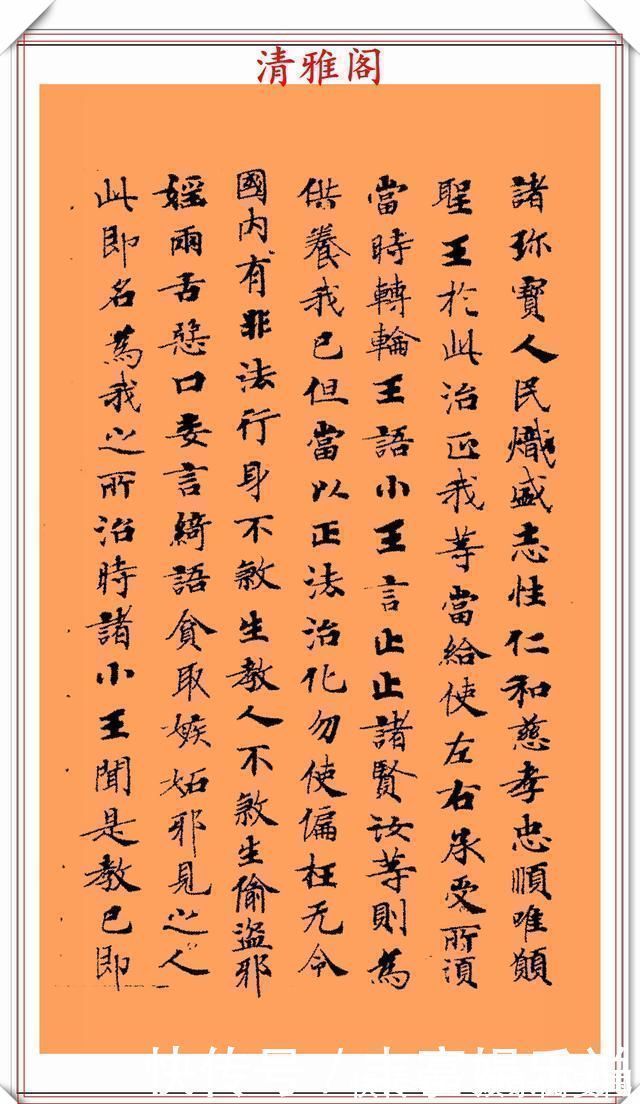 清雅阁
諸珎寳人民熾盛志性仁和慈孝忠順唯願
聖王於此治正我等當給使左右承受所須
當時轉輪王語小王言止止諸賢汝等則為
供養我已但當以正法治化勿使偏枉无令
國內有非法行身不煞生教人不煞生偷盜邪
婬兩舌惡口妄言綺語貪取嫉妬邪見之人
此即名為我之所治時諸小王聞是教已即
快传号